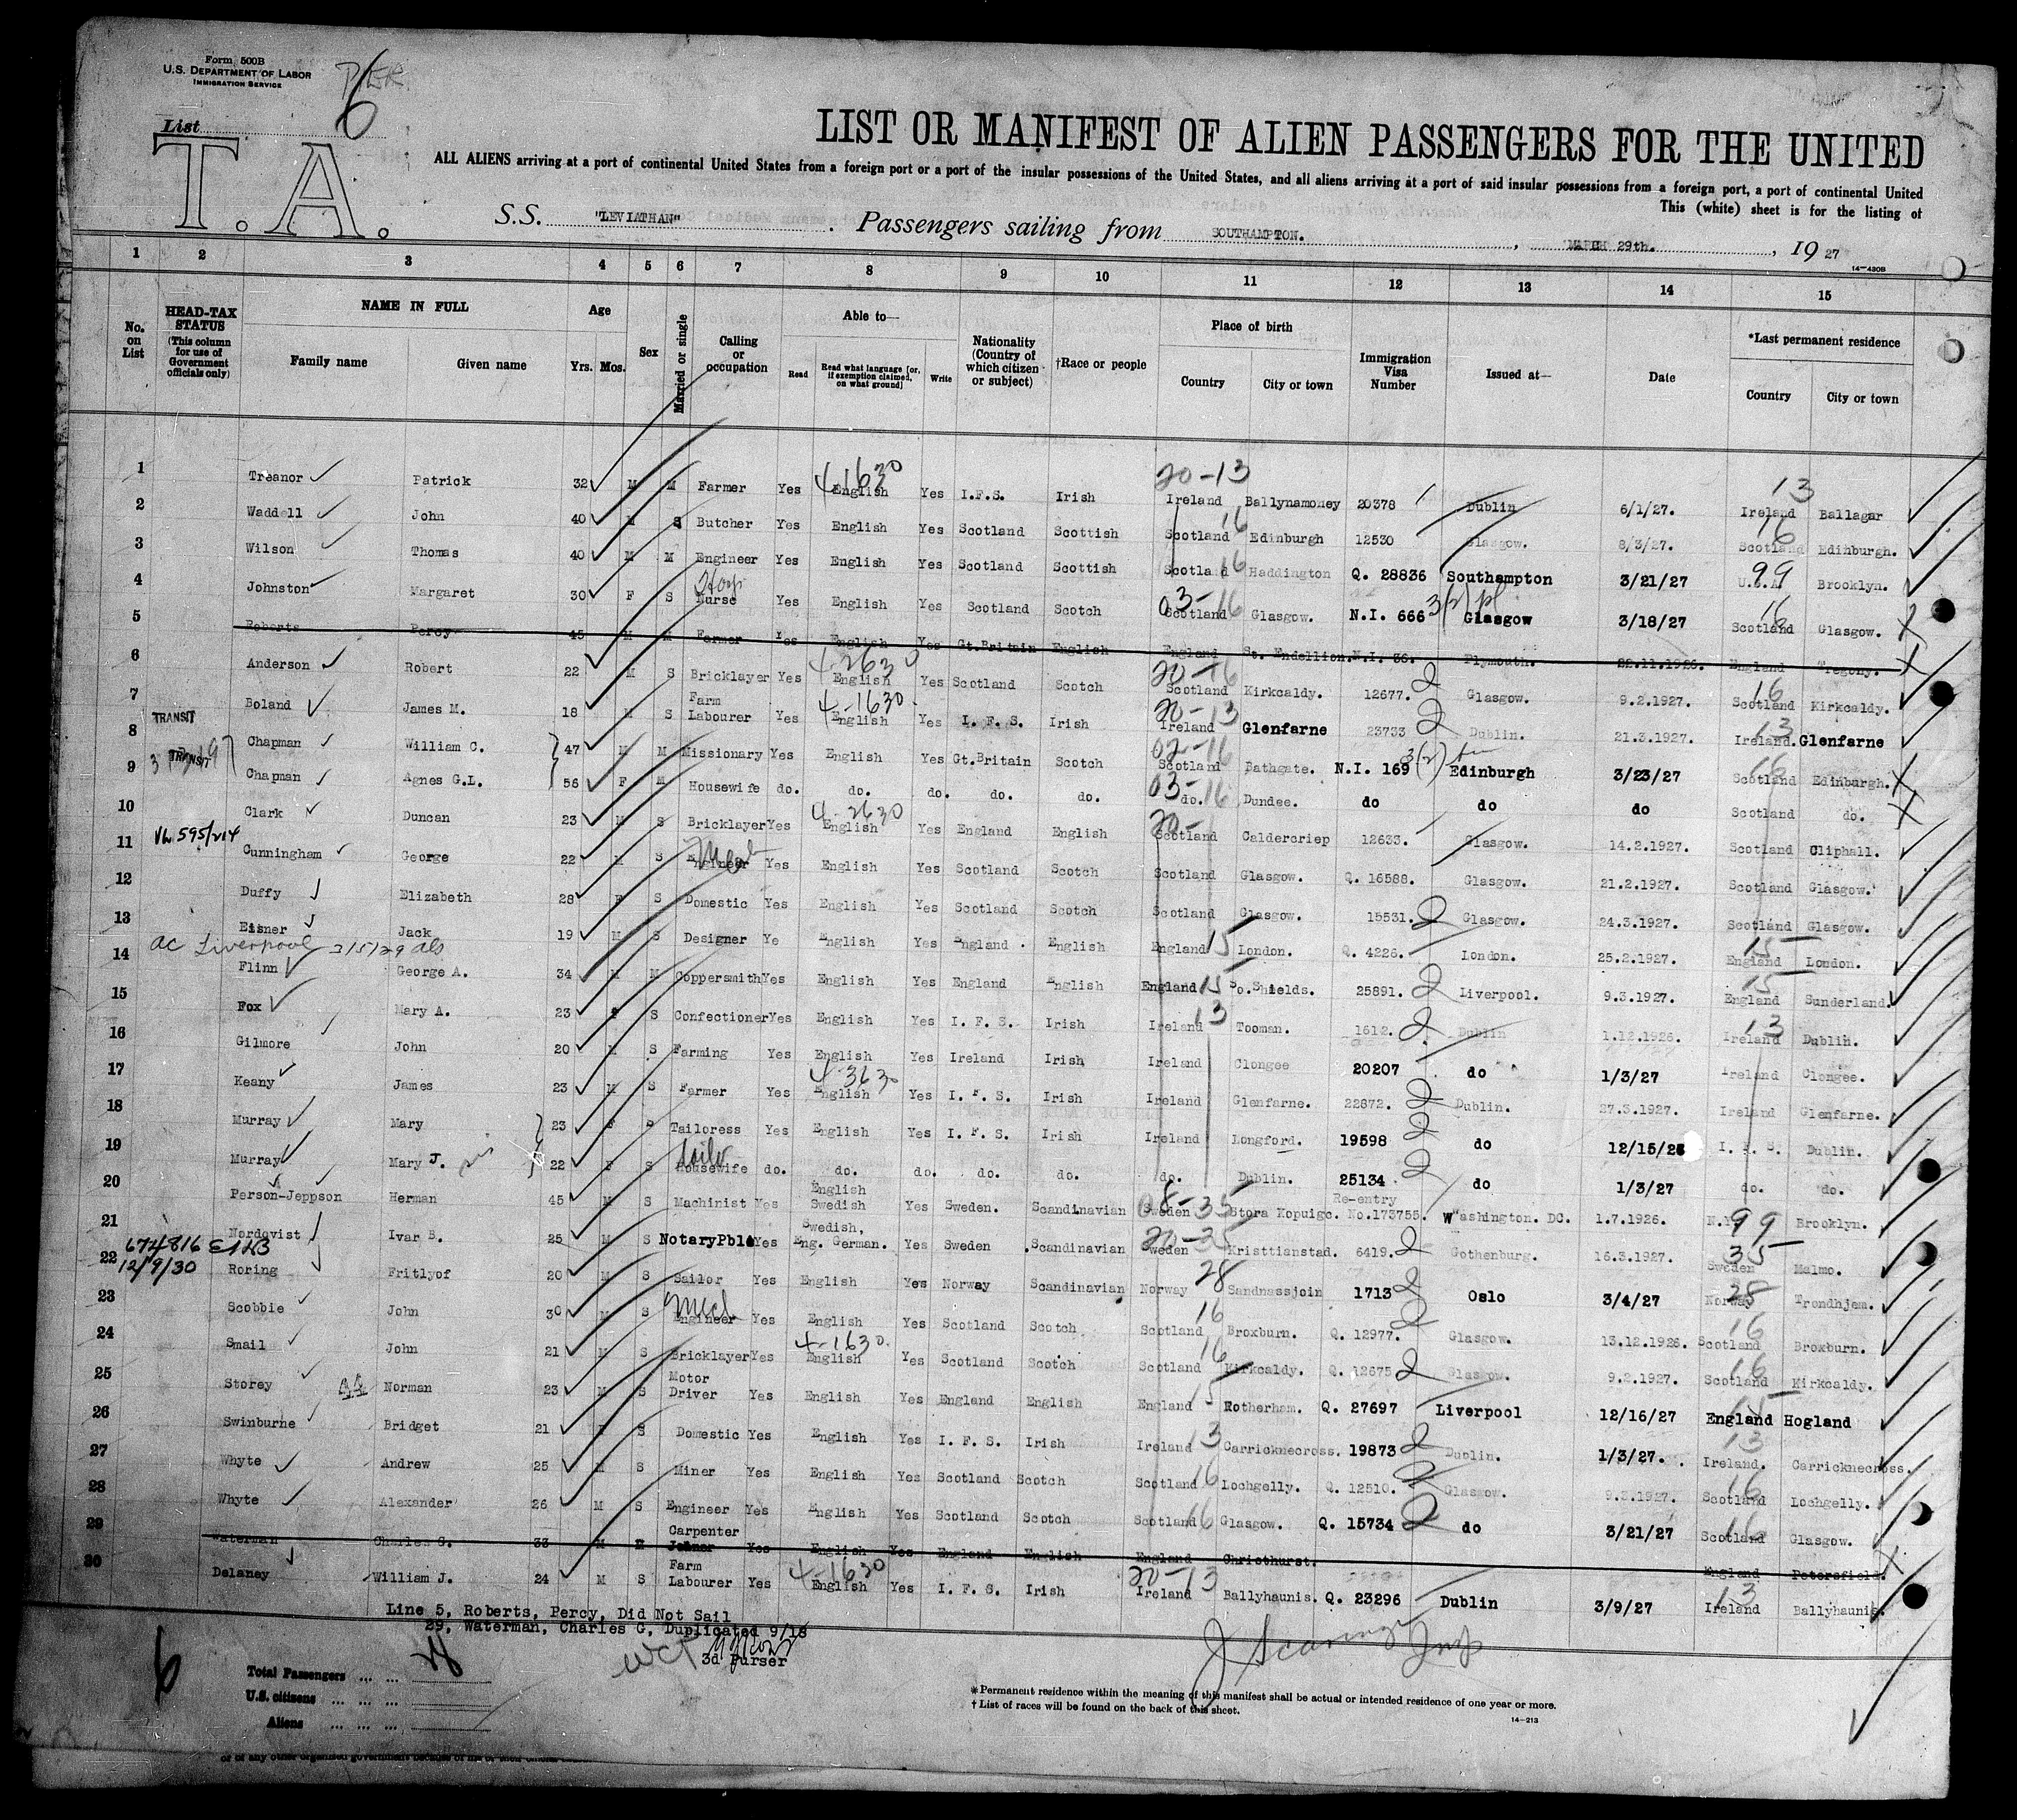 Form 500B
U.S. DEPARTMENT OF LABOR
IMMIGRATION SERVICE
PIER
List 6
T. A.
LIST OR MANIFEST OF ALIEN PASSENGERS FOR THE UNITED
ALL ALIENS arriving at a port of continental United States from a foreign port or a port of the insular possessions of the United States, and all aliens arriving at a port of said insular possessions from a foreign port, a port of continental United
This (white) sheet is for the listing of
S.S. "LEVIATHAN" . Passengers sailing from SOUTHAMPTON. , MARCH 29th. , 19 27
14-430B
1 2 3 4 5 6 7 8 9 10 11 12 13 14 15
No. on List
HEAD-TAX STATUS (This column for use of Government officials only)
NAME IN FULL
Family name Given name
Age Yrs. Mos.
Sex
Married or single
Calling or occupation
Able to—
Read Read what language [or, if exemption claimed, on what ground] Write
Nationality (Country of which citizen or subject)
†Race or people
Place of birth
Country City or town
Immigration Visa Number
Issued at—
Date
*Last permanent residence
Country City or town
1 Treanor Patrick 32 M M Farmer Yes 4-1630 English Yes I.F.S. Irish 20-13 Ireland Ballynamoney 20378 Dublin 6/1/27. 13 Ireland Ballagar
2 Waddell John 40 M S Butcher Yes English Yes Scotland Scottish Scotland 16 Edinburgh 12530 Glasgow. 8/3/27. 16 Scotland Edinburgh.
3 Wilson Thomas 40 M M Engineer Yes English Yes Scotland Scottish Scotland 16 Haddington Q. 28836 Southampton 3/21/27 99 U.S.A. Brooklyn.
4 Johnston Margaret 30 F S Nurse Yes English Yes Scotland Scotch 03-16 Scotland Glasgow. N.I. 666 3(2) Glasgow 3/18/27 16 Scotland Glasgow.
5 Roberts Percy 45 M M Farmer Yes English Yes Gt.Britain English England St. Endellion. N.I. 36. Plymouth. 22.11.1926. England Tregony.
6 Anderson Robert 22 M S Bricklayer Yes 4-2630 English Yes Scotland Scotch 20-16 Scotland Kirkcaldy. 12677. 2 Glasgow. 9.2.1927. 16 Scotland Kirkcaldy.
7 Boland James M. 18 M S Farm Labourer Yes 4-1630. English Yes I. F. S. Irish 20-13 Ireland Glenfarne 23733 2 Dublin. 21.3.1927. 13 Ireland. Glenfarne
8 TRANSIT Chapman William C. 47 M M Missionary Yes English Yes Gt.Britain Scotch 02-16 Scotland Bathgate. N.I. 169 3(2) Edinburgh 3/23/27 16 Scotland Edinburgh.
9 TRANSIT Chapman Agnes G.L. 56 F M Housewife do. do. do. do. do. 03-16 do. Dundee. do do do Scotland do.
10 Clark Duncan 23 M S Bricklayer Yes 4-2630 English Yes England English 20- Scotland Caldercriep 12633. Glasgow. 14.2.1927. Scotland Cliphall.
11 VL 595/214 Cunningham George 22 M S Engineer Mech Yes English Yes Scotland Scotch Scotland Glasgow. Q. 16588. Glasgow. 21.2.1927. Scotland Glasgow.
12 Duffy Elizabeth 28 F S Domestic Yes English Yes Scotland Scotch Scotland Glasgow. 15531. 2 Glasgow. 24.3.1927. Scotland Glasgow.
13 Eisner Jack 19 M S Designer Ye English Yes England. English England 15 London. Q. 4226. London. 25.2.1927. 15 England London.
ac Liverpool 3/5/29 als
14 Flinn George A. 34 M M Coppersmith Yes English Yes England English England 15 So.Shields. 25891. 2 Liverpool. 9.3.1927. 15 England Sunderland.
15 Fox Mary A. 23 F S Confectioner Yes English Yes I. F. S. Irish Ireland 13 Tooman. 1612. 2 Dublin 1.12.1926. 13 Ireland Dublin.
16 Gilmore John 20 M S Farming Yes English Yes Ireland Irish Ireland Clongee 20207 do 1/3/27 Ireland Clongee.
17 Keany James 23 M S Farmer Yes 4-3630 English Yes I. F. S. Irish Ireland Glenfarne. 22872. 2 Dublin. 27.3.1927. Ireland Glenfarne.
18 Murray Mary 23 F S Tailoress Yes English Yes I. F. S. Irish Ireland Longford. 19598 2 do 12/15/26 I. F. S. Dublin.
19 Murray Mary J. sis 22 F S Housewife do. do. do. do. do. do. Dublin. 25134 2 do 1/3/27 do. do.
20 Person-Jeppson Herman 45 M S Machinist Yes English Swedish Yes Sweden. Scandinavian 08-35 Sweden Stora Kopuigc. Re-entry No.173755. Washington. DC. 1.7.1926. N.Y. 99 Brooklyn.
21 Nordqvist Ivar B. 25 M S NotaryPblc Yes Swedish, Eng. German. Yes Sweden Scandinavian 20-35 Sweden Kristtianstad. 6419. 2 Gothenburg. 16.3.1927. 35 Sweden Malmo.
674816
12/9/30
22 Roring Fritlyof 20 M S Sailor Yes English Yes Norway Scandinavian Norway 28 Sandnassjoin 1713 2 Oslo 3/4/27 28 Norway Trondhjem.
23 Scobbie John 30 M S Engineer Mech Yes English Yes Scotland Scotch 16 Scotland Broxburn. Q. 12977. 2 Glasgow. 13.12.1926. 16 Scotland Broxburn.
24 Smail John 21 M S Bricklayer Yes 4-1630. English Yes Scotland Scotch 16 Scotland Kirkcaldy. Q. 12675 2 Glasgow. 9.2.1927. 16 Scotland Kirkcaldy.
25 Storey Norman 23 M S Motor Driver Yes English Yes England English England 15 Rotherham. Q. 27697 Liverpool 12/16/27 15 England Hogland
26 Swinburne Bridget 21 F S Domestic Yes English Yes I. F. S. Irish Ireland 13 Carricknecross. 19873 2 Dublin. 1/3/27. 13 Ireland. Carricknecross.
27 Whyte Andrew 25 M S Miner Yes English Yes Scotland Scotch Scotland 16 Lochgelly. Q. 12510. 2 Glasgow. 9.2.1927. 16 Scotland Lochgelly.
28 Whyte Alexander 26 M S Engineer Yes English Yes Scotland Scotch Scotland 16 Glasgow. Q. 15734 2 do 3/21/27 16 Scotland Glasgow.
29 Waterman Charles G. 33 M M Carpenter Joiner Yes English Yes England English England Christhurst. England Petersfield.
30 Delaney William J. 24 M S Farm Labourer Yes 4-1630 English Yes I. F. S. Irish 20-13 Ireland Ballyhaunis. Q. 23296 Dublin 3/9/27 13 Ireland Ballyhaunis.
Line 5, Roberts, Percy, Did Not Sail
29, Waterman, Charles G, Duplicated 9/18
3d Purser
6
Total Passengers ... ...
U.S. citizens ... ... ...
Aliens ... ... ...
* Permanent residence within the meaning of this manifest shall be actual or intended residence of one year or more.
† List of races will be found on the back of this sheet.
14-213